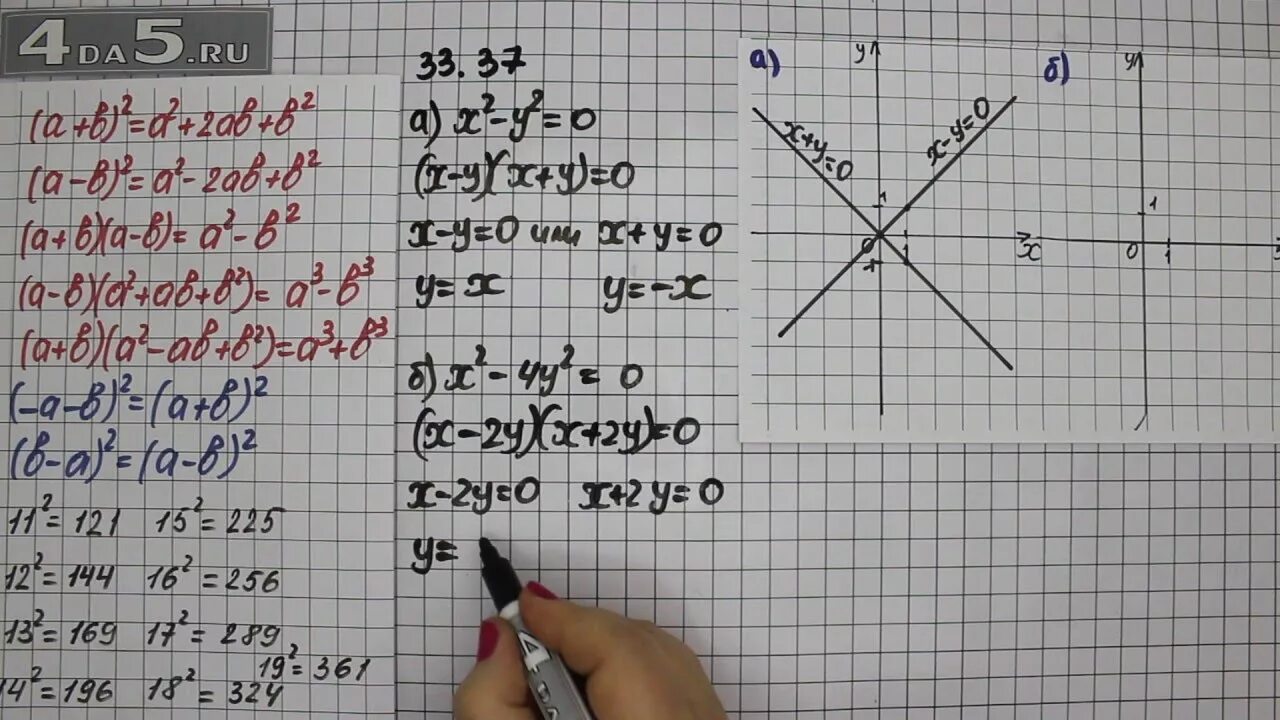 4DA5.RU
(a+в)²=a²+2aв+в²
(a-в)²=a²-2aв+в²
(a+в)(a-в)=a²-в²
(a-в)(a²+aв+в²)=a³-в³
(a+в)(a²-aв+в²)=a³+в³
(-a-в)²=(a+в)²
(в-a)²=(a-в)²
11²=121 15²=225
12²=144 16²=256
13²=169 17²=289
19²=361
14²=196 18²=324
33.37
а) x²-y²=0
(x-y)(x+y)=0
x-y=0 или x+y=0
y=x y=-x
б) x²-4y²=0
(x-2y)(x+2y)=0
x-2y=0 x+2y=0
y=
а) y
x+y=0 x-y=0
1
0 x
б) y
1
0 1
4
DA